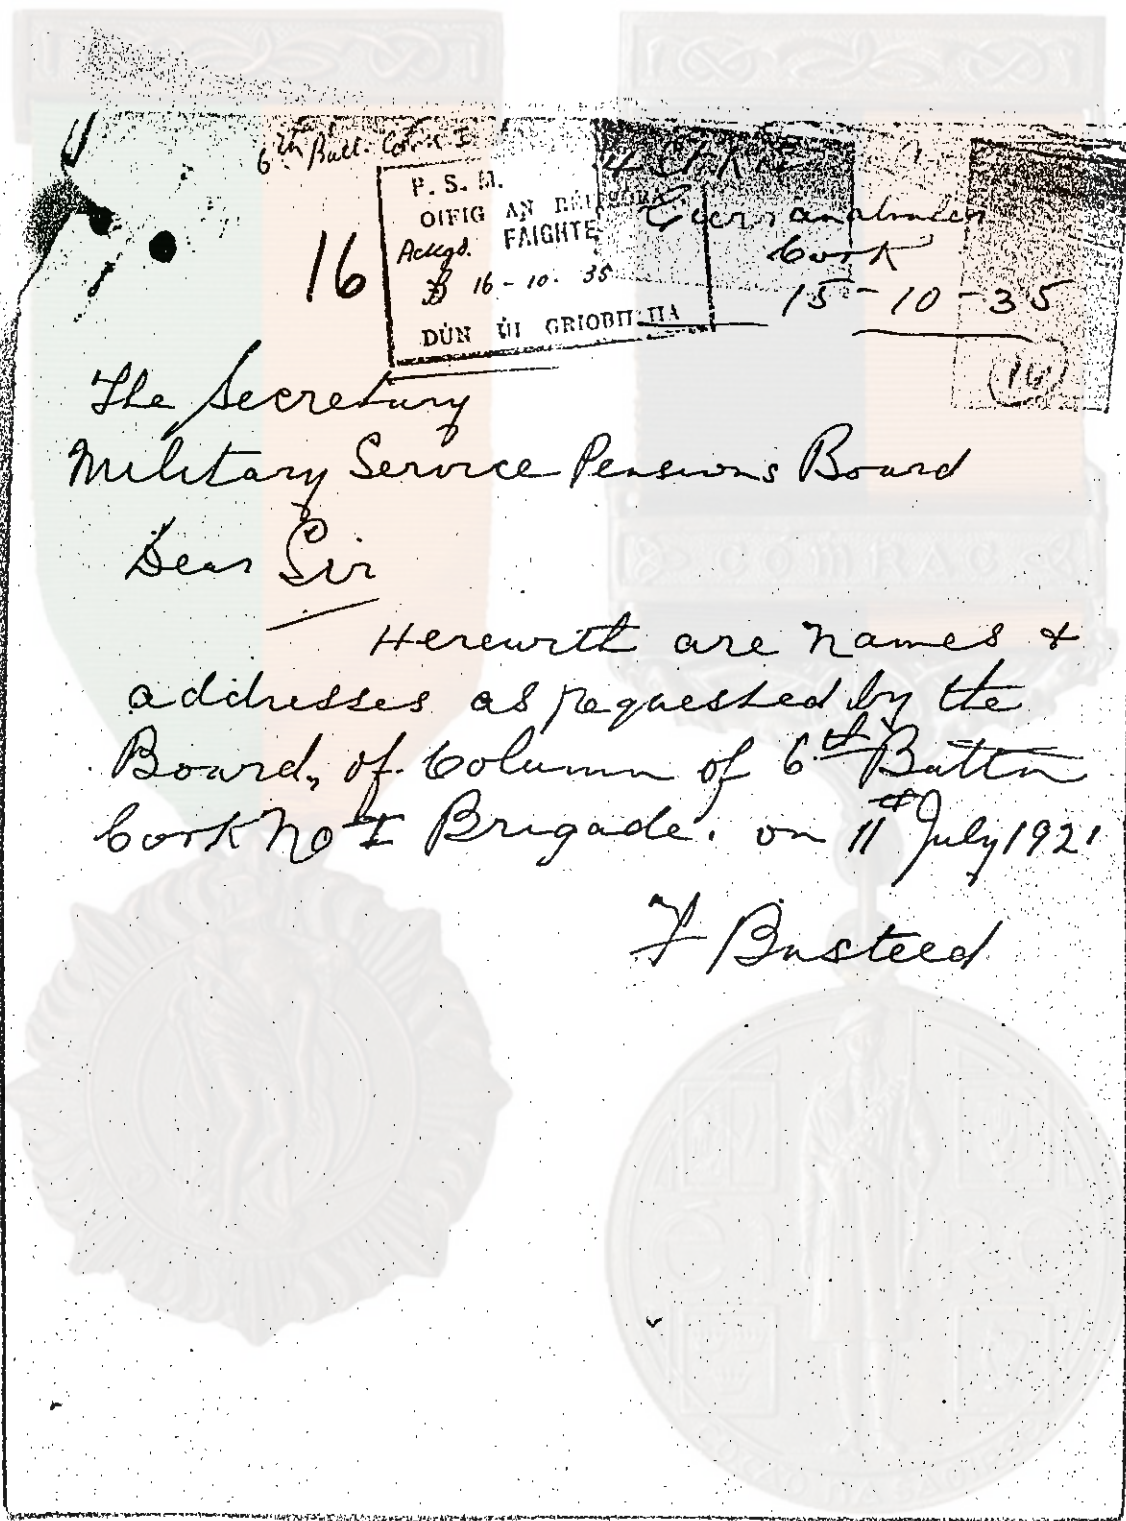 6th Batt. Cork I
16
P. S. M.
OIFIG AN RÉITEÓRA
Ackgd. FAIGHTE
16 - 10 - 35
DÚN UÍ GRIOBHTHA
Cork
15 - 10 - 35
The Secretary
Military Service Pensions Board
Dear Sir
Herewith are names &
addresses as requested by the
Board, of Column of 6th Battn
Cork No I Brigade. on 11th July 1921
F Busteed
COMRAC